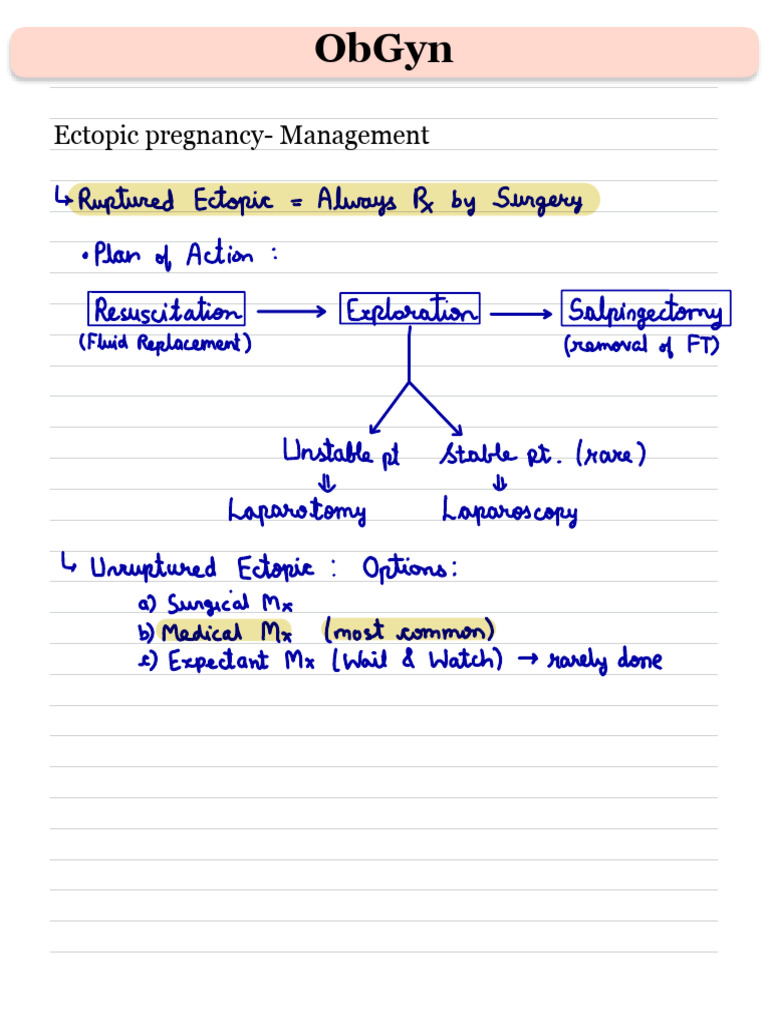 ObGyn
Ectopic pregnancy- Management
↳ Ruptured Ectopic = Always Rx by Surgery
• Plan of Action :
Resuscitation → Exploration → Salpingectomy
(Fluid Replacement) (removal of FT)
Unstable pt Stable pt. (rare)
⇓ ⇓
Laparotomy Laparoscopy
↳ Unruptured Ectopic : Options:
a) Surgical Mx
b) Medical Mx (most common)
c) Expectant Mx (Wail & Watch) → rarely done